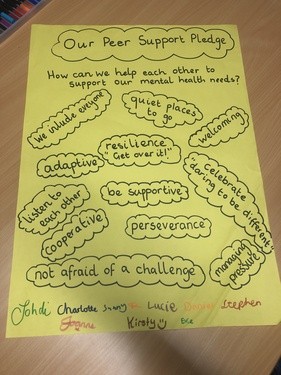 Our Peer Support Pledge
How can we help each other to
support our mental health needs?
we include everyone
quiet places
to go
welcoming
resilience
"Get over it!"
adaptive
Celebrate
"daring to be different"
listen to
each other
be supportive
cooperative
perseverance
managing
pressure
not afraid of a challenge
Charlotte
Lucie
Stephen
Joanne
Kirsty